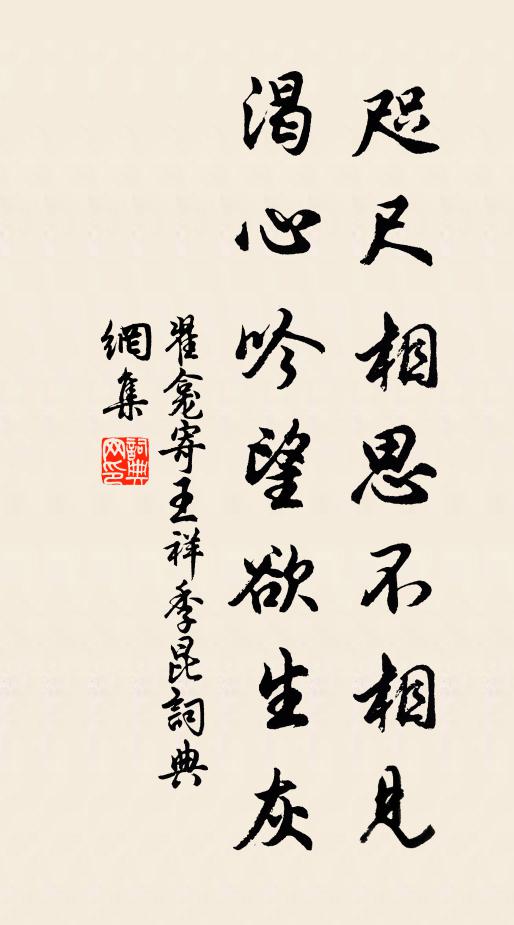 咫尺相思不相見
渴心吟望欲生灰
翟龕寄王祥季昆詞典
網集
詞典
网印